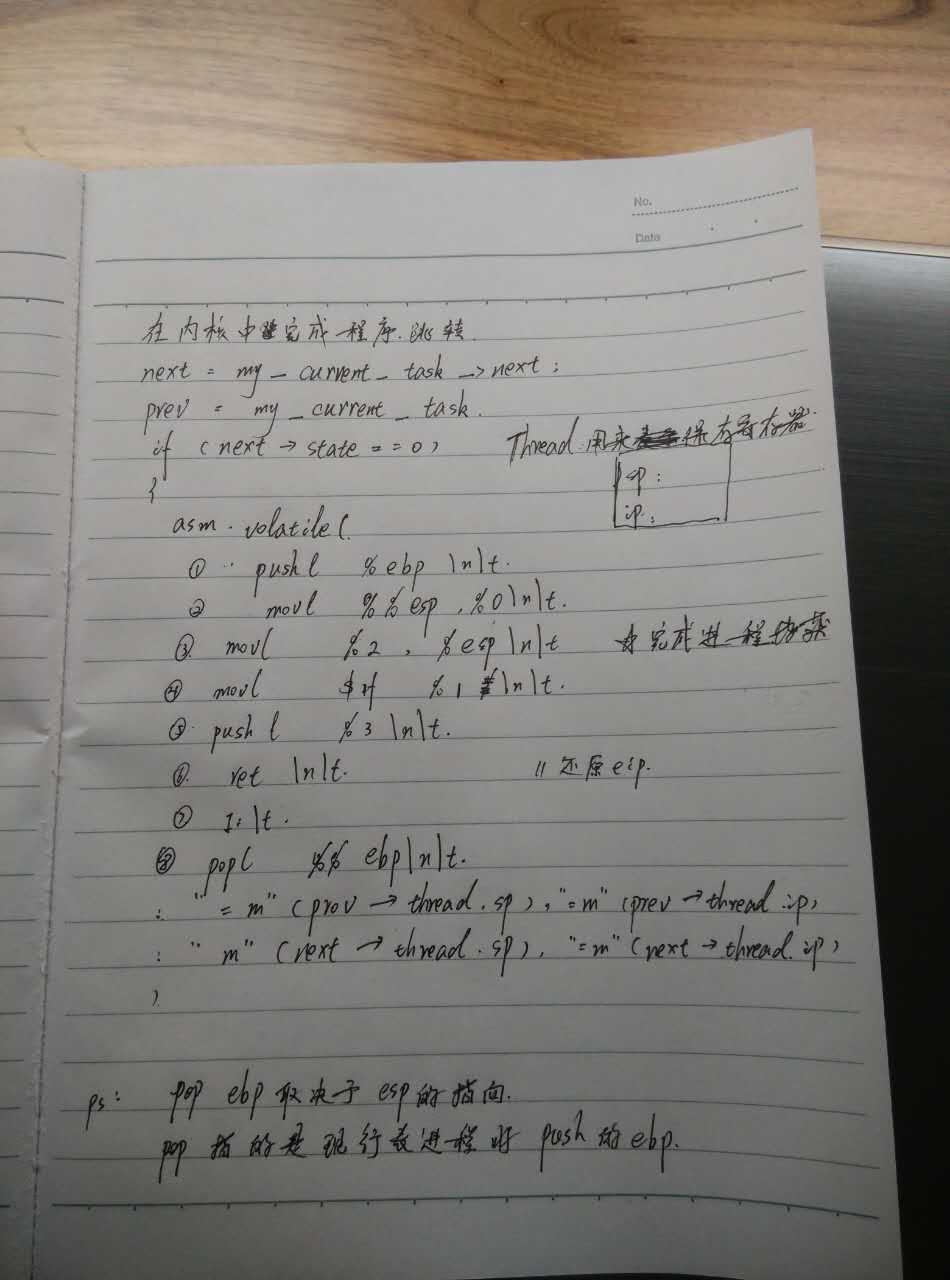 No.
Date
在内核中完成程序.跳转.
next = my_current_task -> next;
prev = my_current_task.
if (next -> state == 0)
Thread 用来保存寄存器.
{
sp:
ip:
asm volatile(
① pushl %ebp \n\t.
② movl %%esp, %0\n\t.
③ movl %2, %esp\n\t 完成进程切换
④ movl $1f %1 \n\t.
⑤ pushl %3 \n\t.
⑥ ret \n\t. // 还原eip.
⑦ 1:\t.
⑧ popl %% ebp\n\t.
: "=m" (prev -> thread.sp), "=m" (prev -> thread.ip)
: "m" (next -> thread.sp), "=m" (next -> thread.ip)
)
ps: pop ebp 取决于 esp的指向.
pop 指的是现行进程时 push 的 ebp.